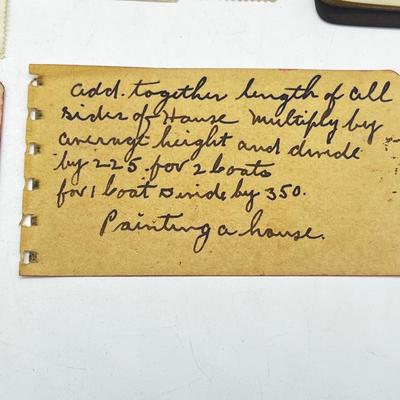 add together length of all
sides of House Multiply by
average height and divide
by 225 for 2 coats
for 1 coat Divide by 350.
Painting a house.